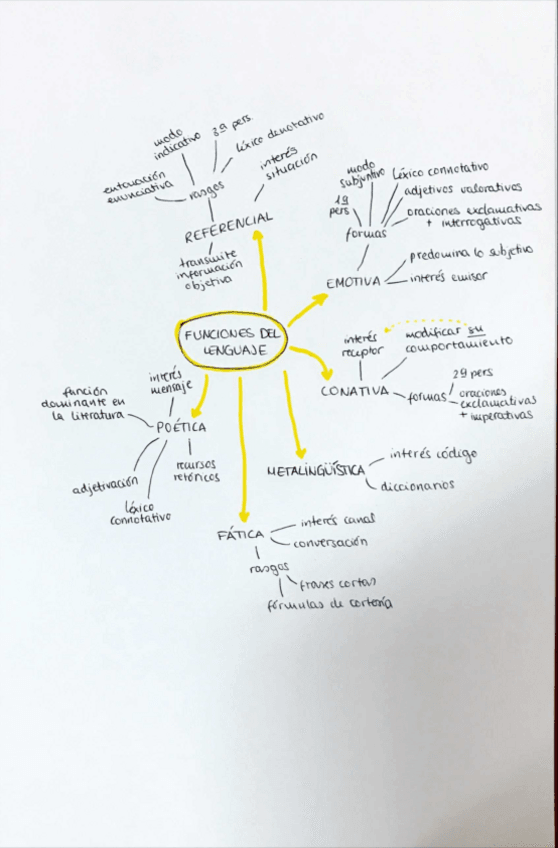 modo
indicativo
3ª pers.
léxico denotativo
entonación
enunciativa
rasgos
interés
situación
REFERENCIAL
transmite
información
objetiva
modo
subjuntivo
léxico connotativo
1ª
pers
adjetivos valorativos
oraciones exclamativas
+ interrogativas
formas
predomina lo subjetivo
EMOTIVA
interés emisor
FUNCIONES DEL
LENGUAJE
interés
receptor
modificar su
comportamiento
CONATIVA
formas
2ª pers
oraciones
exclamativas
+ imperativas
interés
mensaje
función
dominante en
la literatura
POÉTICA
recursos
retóricos
adjetivación
léxico
connotativo
METALINGÜÍSTICA
interés código
diccionarios
FÁTICA
interés canal
conversación
rasgos
frases cortas
fórmulas de cortería